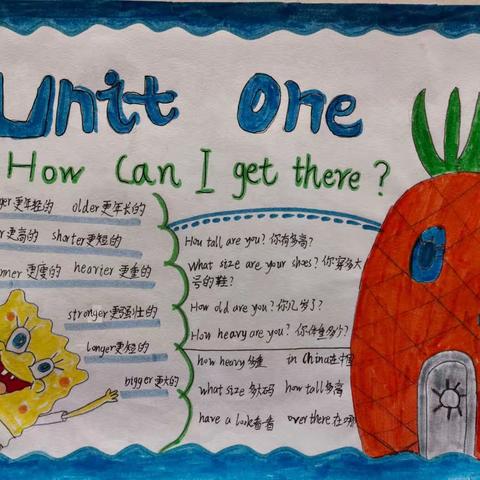 Unit One
How Can I get there?
ger更年轻的 older更年长的
r更高的 shorter更矮的
更瘦的 heavier更重的
stronger更强壮的
Longer更短的
bigger更大的
How tall are you? 你有多高?
What size are your shoes? 你穿多大
号的鞋?
How old are you? 你几岁了?
How heavy are you? 你体重多少?
how heavy 多重 in China在中国
what size 多大码 how tall多高
have a look看看 over there在哪